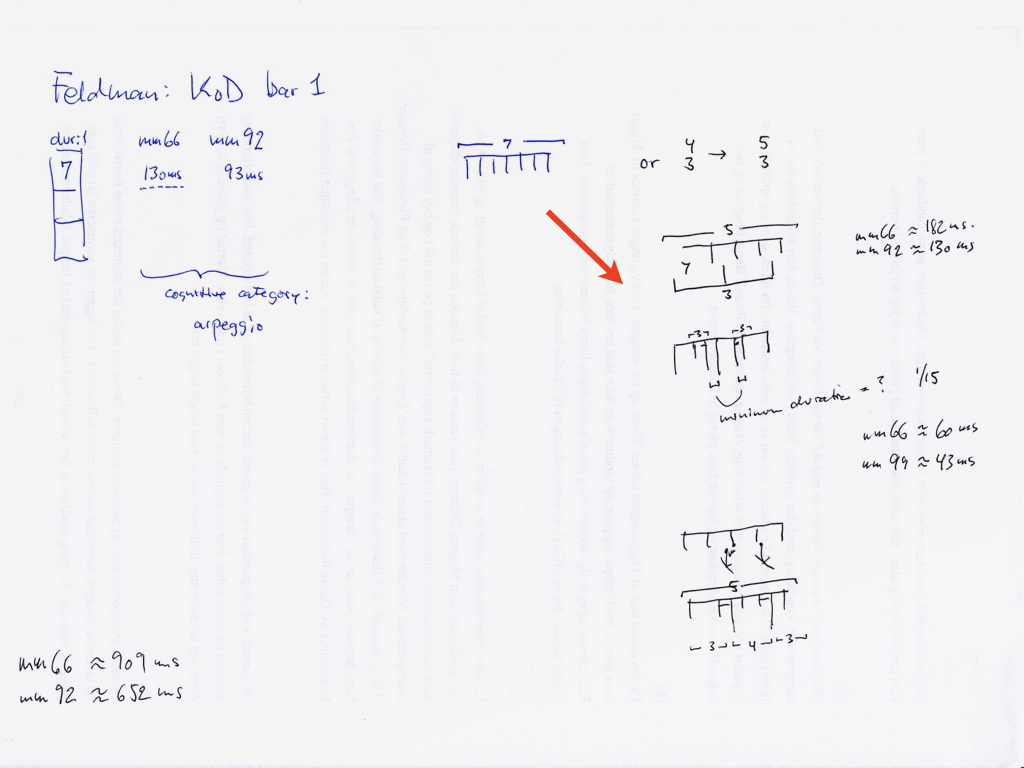 Feldman: KoD bar 1
dur:1 mm66 mm92
7 130ms 93ms
cognitive category:
arpeggio
7
or 4 → 5
3 3
5
7
3
mm66 ≈ 182 ms.
mm92 ≈ 130 ms
3 3
minimum duration = ? 1/15
mm66 ≈ 60 ms
mm 99 ≈ 43 ms
5
3 4 3
mm66 ≈ 909 ms
mm 92 ≈ 652 ms